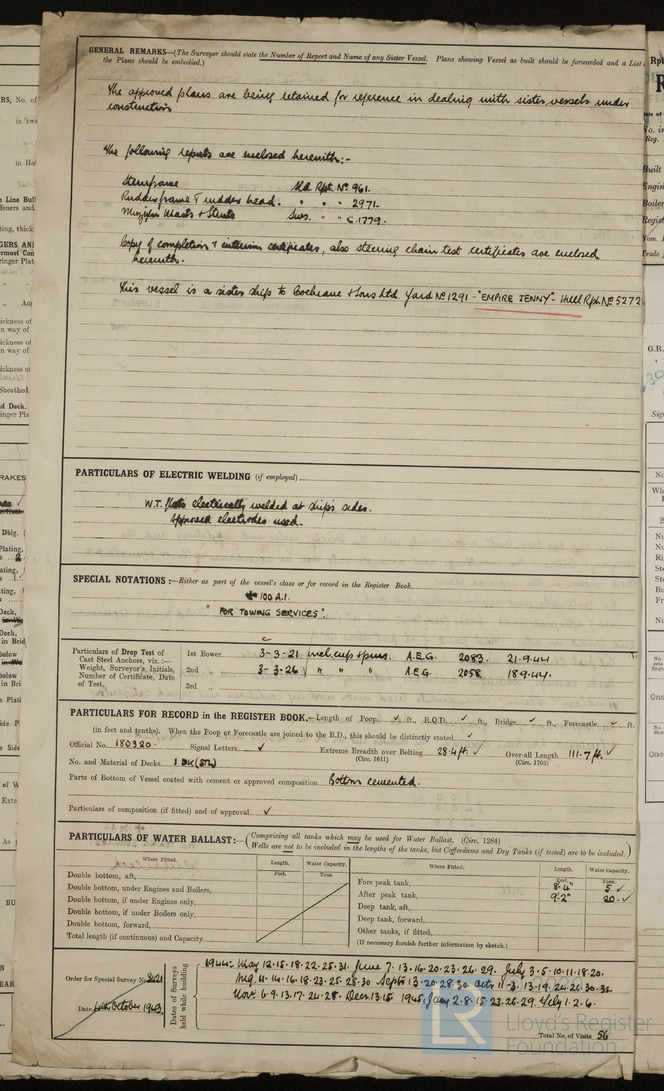 GENERAL REMARKS—(The Surveyor should state the Number of Report and Name of any Sister Vessel. Plans showing Vessel as built should be forwarded and a List
the Plans should be embodied.)
The approved plans are being retained for reference in dealing with sister vessels under
construction
The following reports are enclosed herewith:-
Sternframe Md. Rpt. No 961.
Rudder frame & rudder head. " " " 2971.
Masts & Struts Sws. " " C.1779.
Copy of completion & interim certificates, also steering chain test certificates are enclosed
herewith.
This vessel is a sister ship to Cochrane & Sons Ltd. Yard No 1291 - "EMPIRE JENNY" - Hull Rpt. No 5272
PARTICULARS OF ELECTRIC WELDING (if employed)
W.T. flats electrically welded at ship's sides.
Approved electrodes used.
SPECIAL NOTATIONS:—Either as part of the vessel's class or for record in the Register Book
100 A.1.
"FOR TOWING SERVICES".
Particulars of Drop Test of
Cast Steel Anchors, viz.:—
Weight, Surveyor's Initials,
Number of Certificate, Date
of Test.
1st Bower 3-3-21 incl. cup & pins. A.E.G. 2083. 21.9.44
2nd " 3-3-26 " " " A.E.G. 2058 18.9.44.
3rd "
PARTICULARS FOR RECORD in the REGISTER BOOK.—Length of Poop ✓ ft., R.Q.D. ✓ ft., Bridge ✓ ft., Forecastle ✓ ft.
(in feet and tenths). When the Poop or Forecastle are joined to the B.D., this should be distinctly stated ✓
Official No. 180320. Signal Letters ✓ Extreme Breadth over Belting 28.4 ft. ✓ Over-all Length 111.7 ft. ✓
(Circ. 1611) (Circ. 1703)
No. and Material of Decks 1 DK (STL)
Parts of Bottom of Vessel coated with cement or approved composition Bottom cemented.
Particulars of composition (if fitted) and of approval ✓
PARTICULARS OF WATER BALLAST:—(Comprising all tanks which may be used for Water Ballast. (Circ. 1284)
Wells are not to be included in the lengths of the tanks, but Cofferdams and Dry Tanks (if tested) are to be included.)
Where Fitted. Length. Water Capacity. Where Fitted. Length. Water Capacity.
Feet. Tons. Feet. Tons.
Double bottom, aft, Fore peak tank, 8'-4" 5 ✓
Double bottom, under Engines and Boilers, After peak tank, 9'-2" 20. ✓
Double bottom, if under Engines only, Deep tank, aft,
Double bottom, if under Boilers only, Deep tank, forward,
Double bottom, forward, Other tanks, if fitted,
Total length (if continuous) and Capacity (If necessary furnish further information by sketch.)
Order for Special Survey No. 3421
Date 14th October 1943
Dates of Surveys
held while building
1944:- May 12.15.18.22.25.31. June 7.13.16.20.23.26.29. July 3.5.10.11.18.20.
Aug. 11.14.16.18.23.25.28.30 Septr. 13.20.28.30 Octr. 11.3.13.19.24.26.30.31.
Nov. 6.9.13.17.24.28. Dec. 13.15 1945 Jany 2.8.15.23.26.29. Feby 1.2.6.
Total No. of Visits 56
LR
Lloyd's Register
Foundation